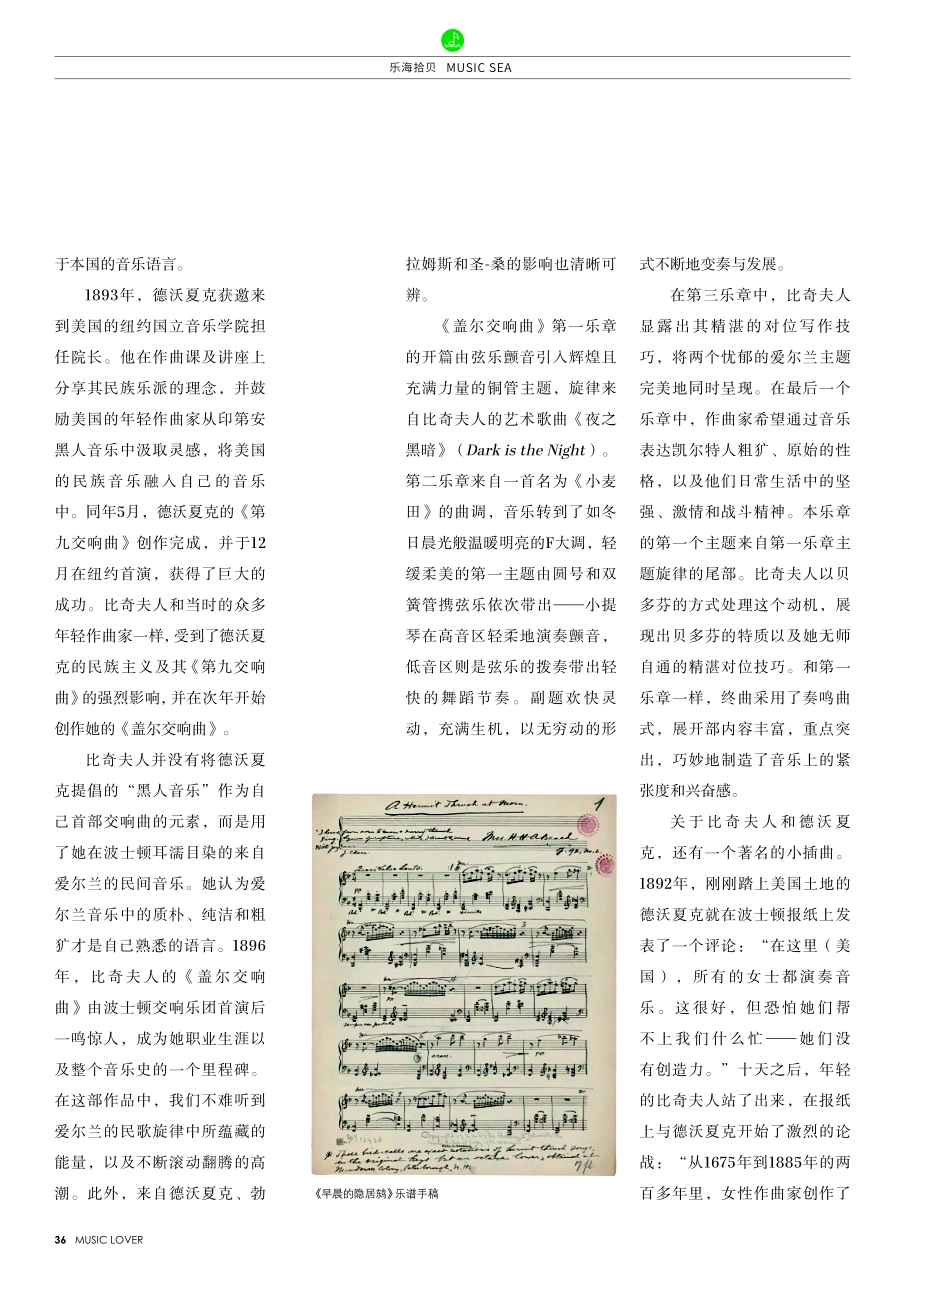 乐海拾贝 MUSIC SEA
于本国的音乐语言。
1893年，德沃夏克获邀来
到美国的纽约国立音乐学院担
任院长。他在作曲课及讲座上
分享其民族乐派的理念，并鼓
励美国的年轻作曲家从印第安
黑人音乐中汲取灵感，将美国
的民族音乐融入自己的音乐
中。同年5月，德沃夏克的《第
九交响曲》创作完成，并于12
月在纽约首演，获得了巨大的
成功。比奇夫人和当时的众多
年轻作曲家一样，受到了德沃夏
克的民族主义及其《第九交响
曲》的强烈影响，并在次年开始
创作她的《盖尔交响曲》。
比奇夫人并没有将德沃夏
克提倡的“黑人音乐”作为自
己首部交响曲的元素，而是用
了她在波士顿耳濡目染的来自
爱尔兰的民间音乐。她认为爱
尔兰音乐中的质朴、纯洁和粗
犷才是自己熟悉的语言。1896
年，比奇夫人的《盖尔交响
曲》由波士顿交响乐团首演后
一鸣惊人，成为她职业生涯以
及整个音乐史的一个里程碑。
在这部作品中，我们不难听到
爱尔兰的民歌旋律中所蕴藏的
能量，以及不断滚动翻腾的高
潮。此外，来自德沃夏克、勃
拉姆斯和圣-桑的影响也清晰可
辨。
《盖尔交响曲》第一乐章
的开篇由弦乐颤音引入辉煌且
充满力量的铜管主题，旋律来
自比奇夫人的艺术歌曲《夜之
黑暗》（Dark is the Night）。
第二乐章来自一首名为《小麦
田》的曲调，音乐转到了如冬
日晨光般温暖明亮的F大调，轻
缓柔美的第一主题由圆号和双
簧管携弦乐依次带出——小提
琴在高音区轻柔地演奏颤音，
低音区则是弦乐的拨奏带出轻
快的舞蹈节奏。副题欢快灵
动，充满生机，以无穷动的形
A Hermit Thrush at Morn.
1
Mrs. H. H. A. Beach
《早晨的隐居鸫》乐谱手稿
式不断地变奏与发展。
在第三乐章中，比奇夫人
显露出其精湛的对位写作技
巧，将两个忧郁的爱尔兰主题
完美地同时呈现。在最后一个
乐章中，作曲家希望通过音乐
表达凯尔特人粗犷、原始的性
格，以及他们日常生活中的坚
强、激情和战斗精神。本乐章
的第一个主题来自第一乐章主
题旋律的尾部。比奇夫人以贝
多芬的方式处理这个动机，展
现出贝多芬的特质以及她无师
自通的精湛对位技巧。和第一
乐章一样，终曲采用了奏鸣曲
式，展开部内容丰富，重点突
出，巧妙地制造了音乐上的紧
张度和兴奋感。
关于比奇夫人和德沃夏
克，还有一个著名的小插曲。
1892年，刚刚踏上美国土地的
德沃夏克就在波士顿报纸上发
表了一个评论：“在这里（美
国），所有的女士都演奏音
乐。这很好，但恐怕她们帮
不上我们什么忙——她们没
有创造力。”十天之后，年轻
的比奇夫人站了出来，在报纸
上与德沃夏克开始了激烈的论
战：“从1675年到1885年的两
百多年里，女性作曲家创作了
36 MUSIC LOVER